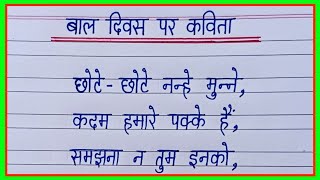 बाल दिवस पर कविता
छोटे-छोटे नन्हे मुन्ने,
कदम हमारे पक्के हैं,
समझना न तुम इनको,